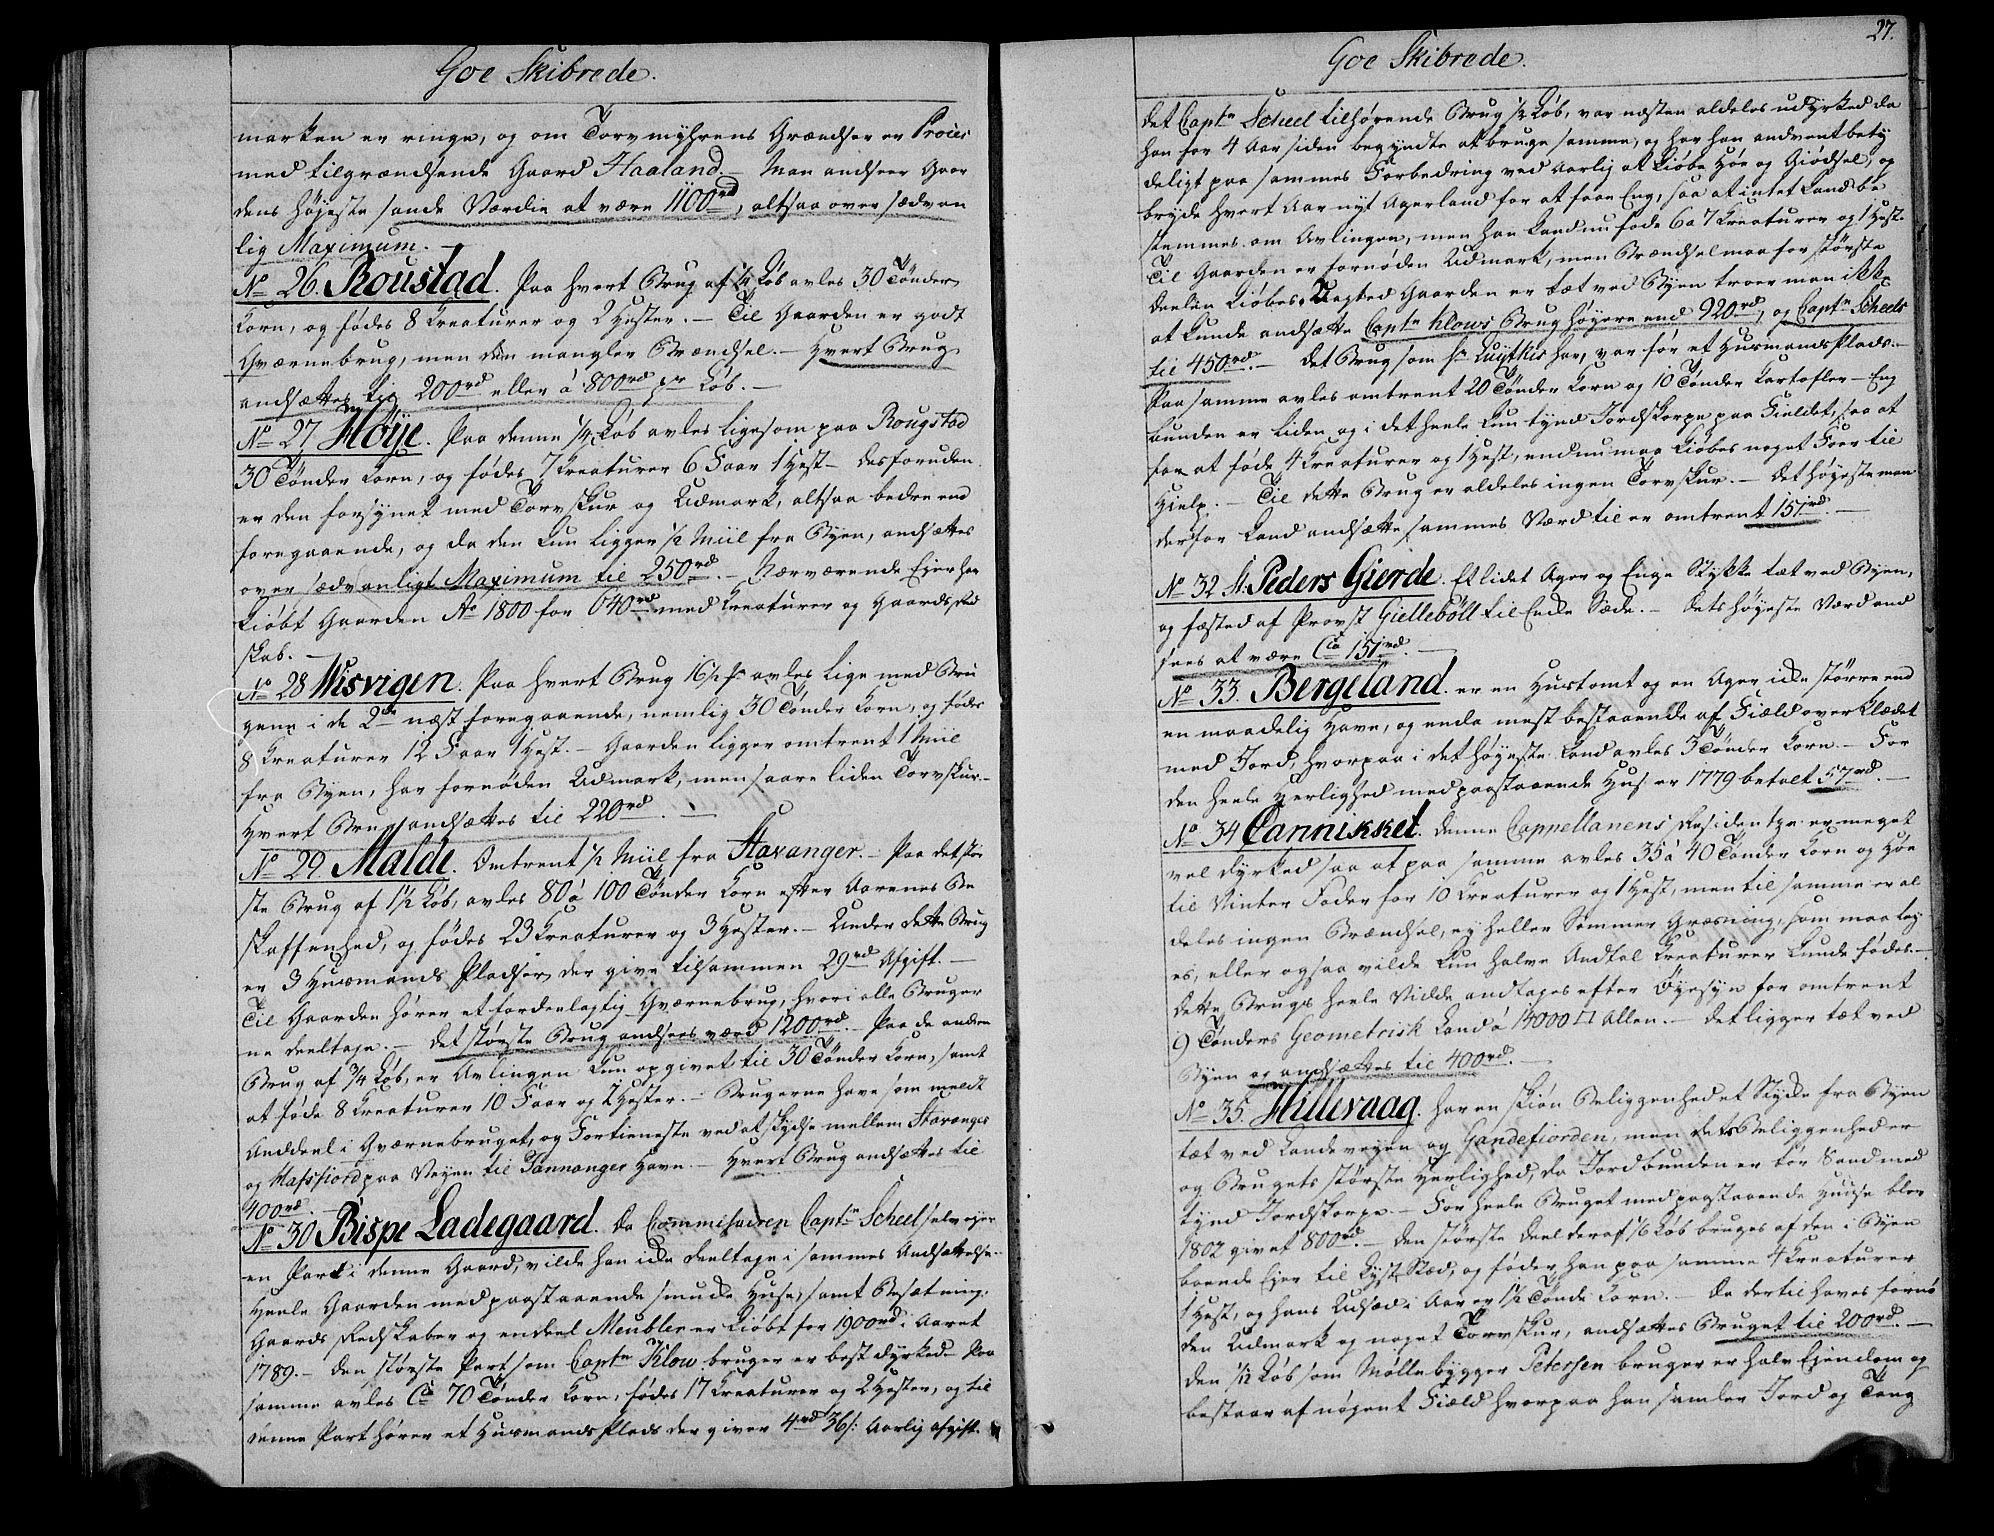 Goe Skibrede.
marken er ringe, og om Torvmyhrens Grændser er Proces
med tilgrændsende Gaard Haaland. – Man andseer Gaar
dens højeste sande Værdie at være 1100rd, altsaa over sædvan
lig Maximum. –
No 26. Roustad. Paa hvert Brug af 1/4 Løb avles 30 Tønder
Korn, og fødes 8 Kreaturer og 2 Hester. – Til Gaarden er godt
Qværnebrug, men den mangler Brændsel. – Hvert Brug
andsættes til 200rd eller á 800rd pr Løb. –
No 27 Høije. Paa denne 1/4 Løb avles ligesom paa Rougstad
30 Tønder Korn, og fødes 7 Kreaturer 6 Faar 1 Hest – desforuden
er den forsynet med Torvskur og Udmark, altsaa bedre end
foregaaende, og da den kun ligger 1/2 Miil fra Byen, andsættes
over sædvanligt Maximum til 250rd. – Nærværende Ejer har
kiøbt Gaarden Ao 1800 for 640rd med Kreaturer og Gaards Red
skab. –
No 28 Wisvigen. Paa hvert Brug 16 1/2 s avles lige med Bru
gene i de 2de næst foregaaende, nemlig 30 Tønder Korn, og fødes
8 Kreaturer 12 Faar 1 Hest. – Gaarden ligger omtrent 1 Miil
fra Byen, har fornøden Udmark, men saare liden Torvskur –
Hvert Brug andsættes til 220rd. –
No 29 Malde. Omtrent 1/2 Miil fra Stavanger. – Paa det stør
ste Brug af 1 1/2 Løb, avles 80 á 100 Tønder Korn efter Aarenes Be
skaffenhed, og fødes 23 Kreaturer og 3 Hester. – Under dette Brug
er 3 Husmands Pladser, der give tilsammen 29rd Afgift. –
Til Gaarden hører et fordeelagtig Qværnebrug, hvori alle Bruger
ne deeltage. – Det største Brug andsees værd 1200rd. – Paa de andre
Brug af 3/4 Løb, er Avlingen kun opgivet til 30 Tønder Korn, samt
at føde 8 Kreaturer 10 Faar og 2 Hester. – Brugerne have som meldt
Anddeel i Qværnebruget, og Fortieneste ved at skydse mellem Stavanger
og Hafsfiord paa Veyen til Tannanger Havn. – Hvert Brug andsættes til
400rd. –
No 30 Bispe Ladegaard. Da Commissairen Captn Scheel selv ejer
en Part i denne Gaard, vilde han icke deeltage i sammes Andsættelse. –
Heele Gaarden med paastaaende smucke Huse, samt Besætning,
Gaards Redskaber og endeel Meubler er kiøbt for 1900rd i Aaret
1789. – Den største Part som Captn Klow bruger er best dyrked. Paa
samme avles Ca 70 Tønder Korn, fødes 17 Kreaturer og 2 Hester, og til
denne Part hører et Husmands Plads der giver 4rd 36s: Aarlig Afgift. –
27.
Goe Skibrede.
Det Captn Scheel tilhørende Brug 1/2 Løb, var næsten aldeles udyrked da
han for 4 Aar siden begyndte at bruge samme, og har han andvent bety
deligt paa sammes Forbedring ved Aarlig at kiøbe Høe og Giødsel, og
bryde hvert Aar nyt Agerland for at faae Eng, saa at intet kand be
stemmes om Avlingen, men han kand nu føde 6 a 7 Kreaturer og 1 Hest.
Til Gaarden er fornøden Udmark, men Brændsel maa for største
Deelen kiøbes. Uagted Gaarden er tæt ved Byen troer man ikke
at kunde andsætte Captn Klows Brug høyere end 920rd, og Captn Scheels
til 450rd. – Det Brug som Hr Luytkis har, var før et Husmands Plads. –
Paa samme avles omtrent 20 Tønder Korn og 10 Tønder Kartofler – Eng
bunden er liden og i det heele kun tynd Jordskorpe paa Fieldet, saa at
for at føde 4 Kreaturer og 1 Hest, endnu maa kiøbes noget Foer til
Hielp. – Til dette Brug er aldeles ingen Torvskur. – Det høyeste man
derfor kand andsætte sammes Værd til er omtrent 151rd. –
No 32 St. Peders Gierde. Et lidet Ager og Enge Stykke tæt ved Byen,
og fæsted af Provst Giellebøll til Encke Sæde. – Dets høyeste Værd and
sees at være Ca 151rd. –
No 33. Bergeland. er en Hustomt og en Ager icke større end
en maadelig Have, og enda mest bestaaende af Field overklædet
med Jord, hvorpaa i det høyeste kand avles 3 Tønder Korn. – For
den heele Herlighed med paastaaende Hus er 1779 betalt 57rd. –
No 34 Cannikket. Denne Cappellanens Residentze er meget
vel dyrked saa at paa samme avles 35 á 40 Tønder Korn og Høe
til Vinter Foder for 10 Kreaturer og 1 Hest, men til samme er al
deles ingen Brændsel, ey heller Sommer Græsning, som maa ley
es, eller ogsaa vilde kun halve Andtal Kreaturer kunde fødes. –
Dette Brugs heele Vidde andtages efter Øyesyn for omtrent
9 Tønders Geometrisk Land á 14000 □ Allen. – Det ligger tæt ved
Byen og andsættes til 400rd. –
No 35. Hillevaag. har en skiøn Beliggenhed et Stycke fra Byen
tæt ved Landeveyen og Gandefiorden, men dets Beliggenhed er
og Brugets største Herlighed, da Jordbunden er tør Sand med
tynd Jordskorpe. – For heele Bruget med paastaaende Huuse blev
1802 givet 800rd. – Den største Deel deraf 1/6 Løb bruges af den i Byen
boende Ejer til Lyst Sted, og føder han paa samme 4 Kreaturer
1 Hest, og hans Udsæd i Aar er 1 1/2 Tønde Korn. – Da dertil haves fornø
den Udmark og noget Torvskur, andsættes Bruget til 200rd. –
Den 1/12 Løb som Møllebygger Petersen bruger er halv Ejendom og
bestaar af nøgent Field hvorpaa han samler Jord og Tang